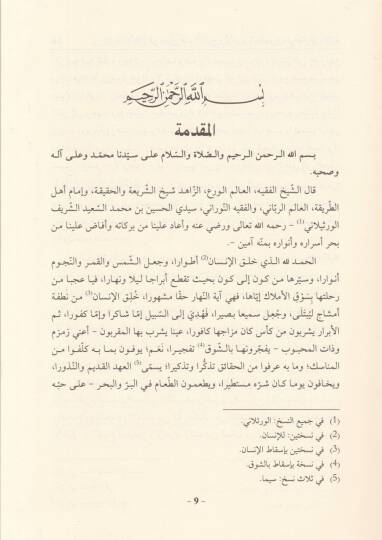 بسم الله الرحمن الرحيم
المقدمة
بسم الله الرحمن الرحيم والصلاة والسّلام على سيّدنا محمّد وعلى آله
وصحبه.
قال الشّيخ الفقيه، العالم الورع، الزّاهد شيخ الشّريعة والحقيقة، وإمام أهل
الطّريقة، العالم الربّاني، والفقيه النّوراني، سيدي الحسين بن محمد السّعيد الشّريف
الورثيلاني(1) – رحمه الله تعالى ورضي عنه وأعاد علينا من بركاته وأفاض علينا من
بحر أسراره وأنواره بمنّه آمين –.
الحمد لله الذي خلق الإنسان(2) أطوارا، وجعل الشّمس والقمر والنّجوم
أنوارا، وسيّرها من كون إلى كون بحيث تقطع أبراجا ليلا ونهارا، فيا عجبا من
رحلتها بِسَوْقِ الأملاك إيّاها، فهي آية النّهار حقّا مشهورا، خُلِق الإنسان(3) من نطفة
أمشاج ليُبتلَى، وجُعِل سميعا بصيرا، فهُدِيَ إلى السّبيل إمّا شاكرا وإمّا كفورا، ثم
الأبرار يشربون من كأس كان مزاجها كافورا، عينا يشرب بها المقربون – أعني زمزم
وذات المحبوب – يفجّرونها بالشّوق(4) تفجيرا، نَعَم؛ يوفون بما به كلّفوا من
المناسك؛ وما به عرفوا من الحقائق تذكّرا وتذكيرا؛ يسمّى(5) العهد القديم والنّذورا،
ويخافون يوما كان شرّه مستطيرا، ويطعمون الطّعام في البرّ والبحر – على حبّه
(1) في جميع النسخ: الورثلاني.
(2) في نسختين: للإنسان.
(3) في نسختين بإسقاط الإنسان.
(4) في نسخة بإسقاط بالشوق.
(5) في ثلاث نسخ: سيما.
- 9 -